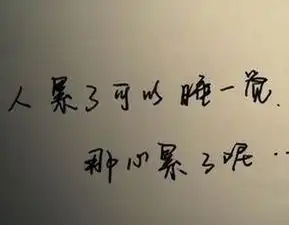 人累了可以睡一觉.
那心累了呢··